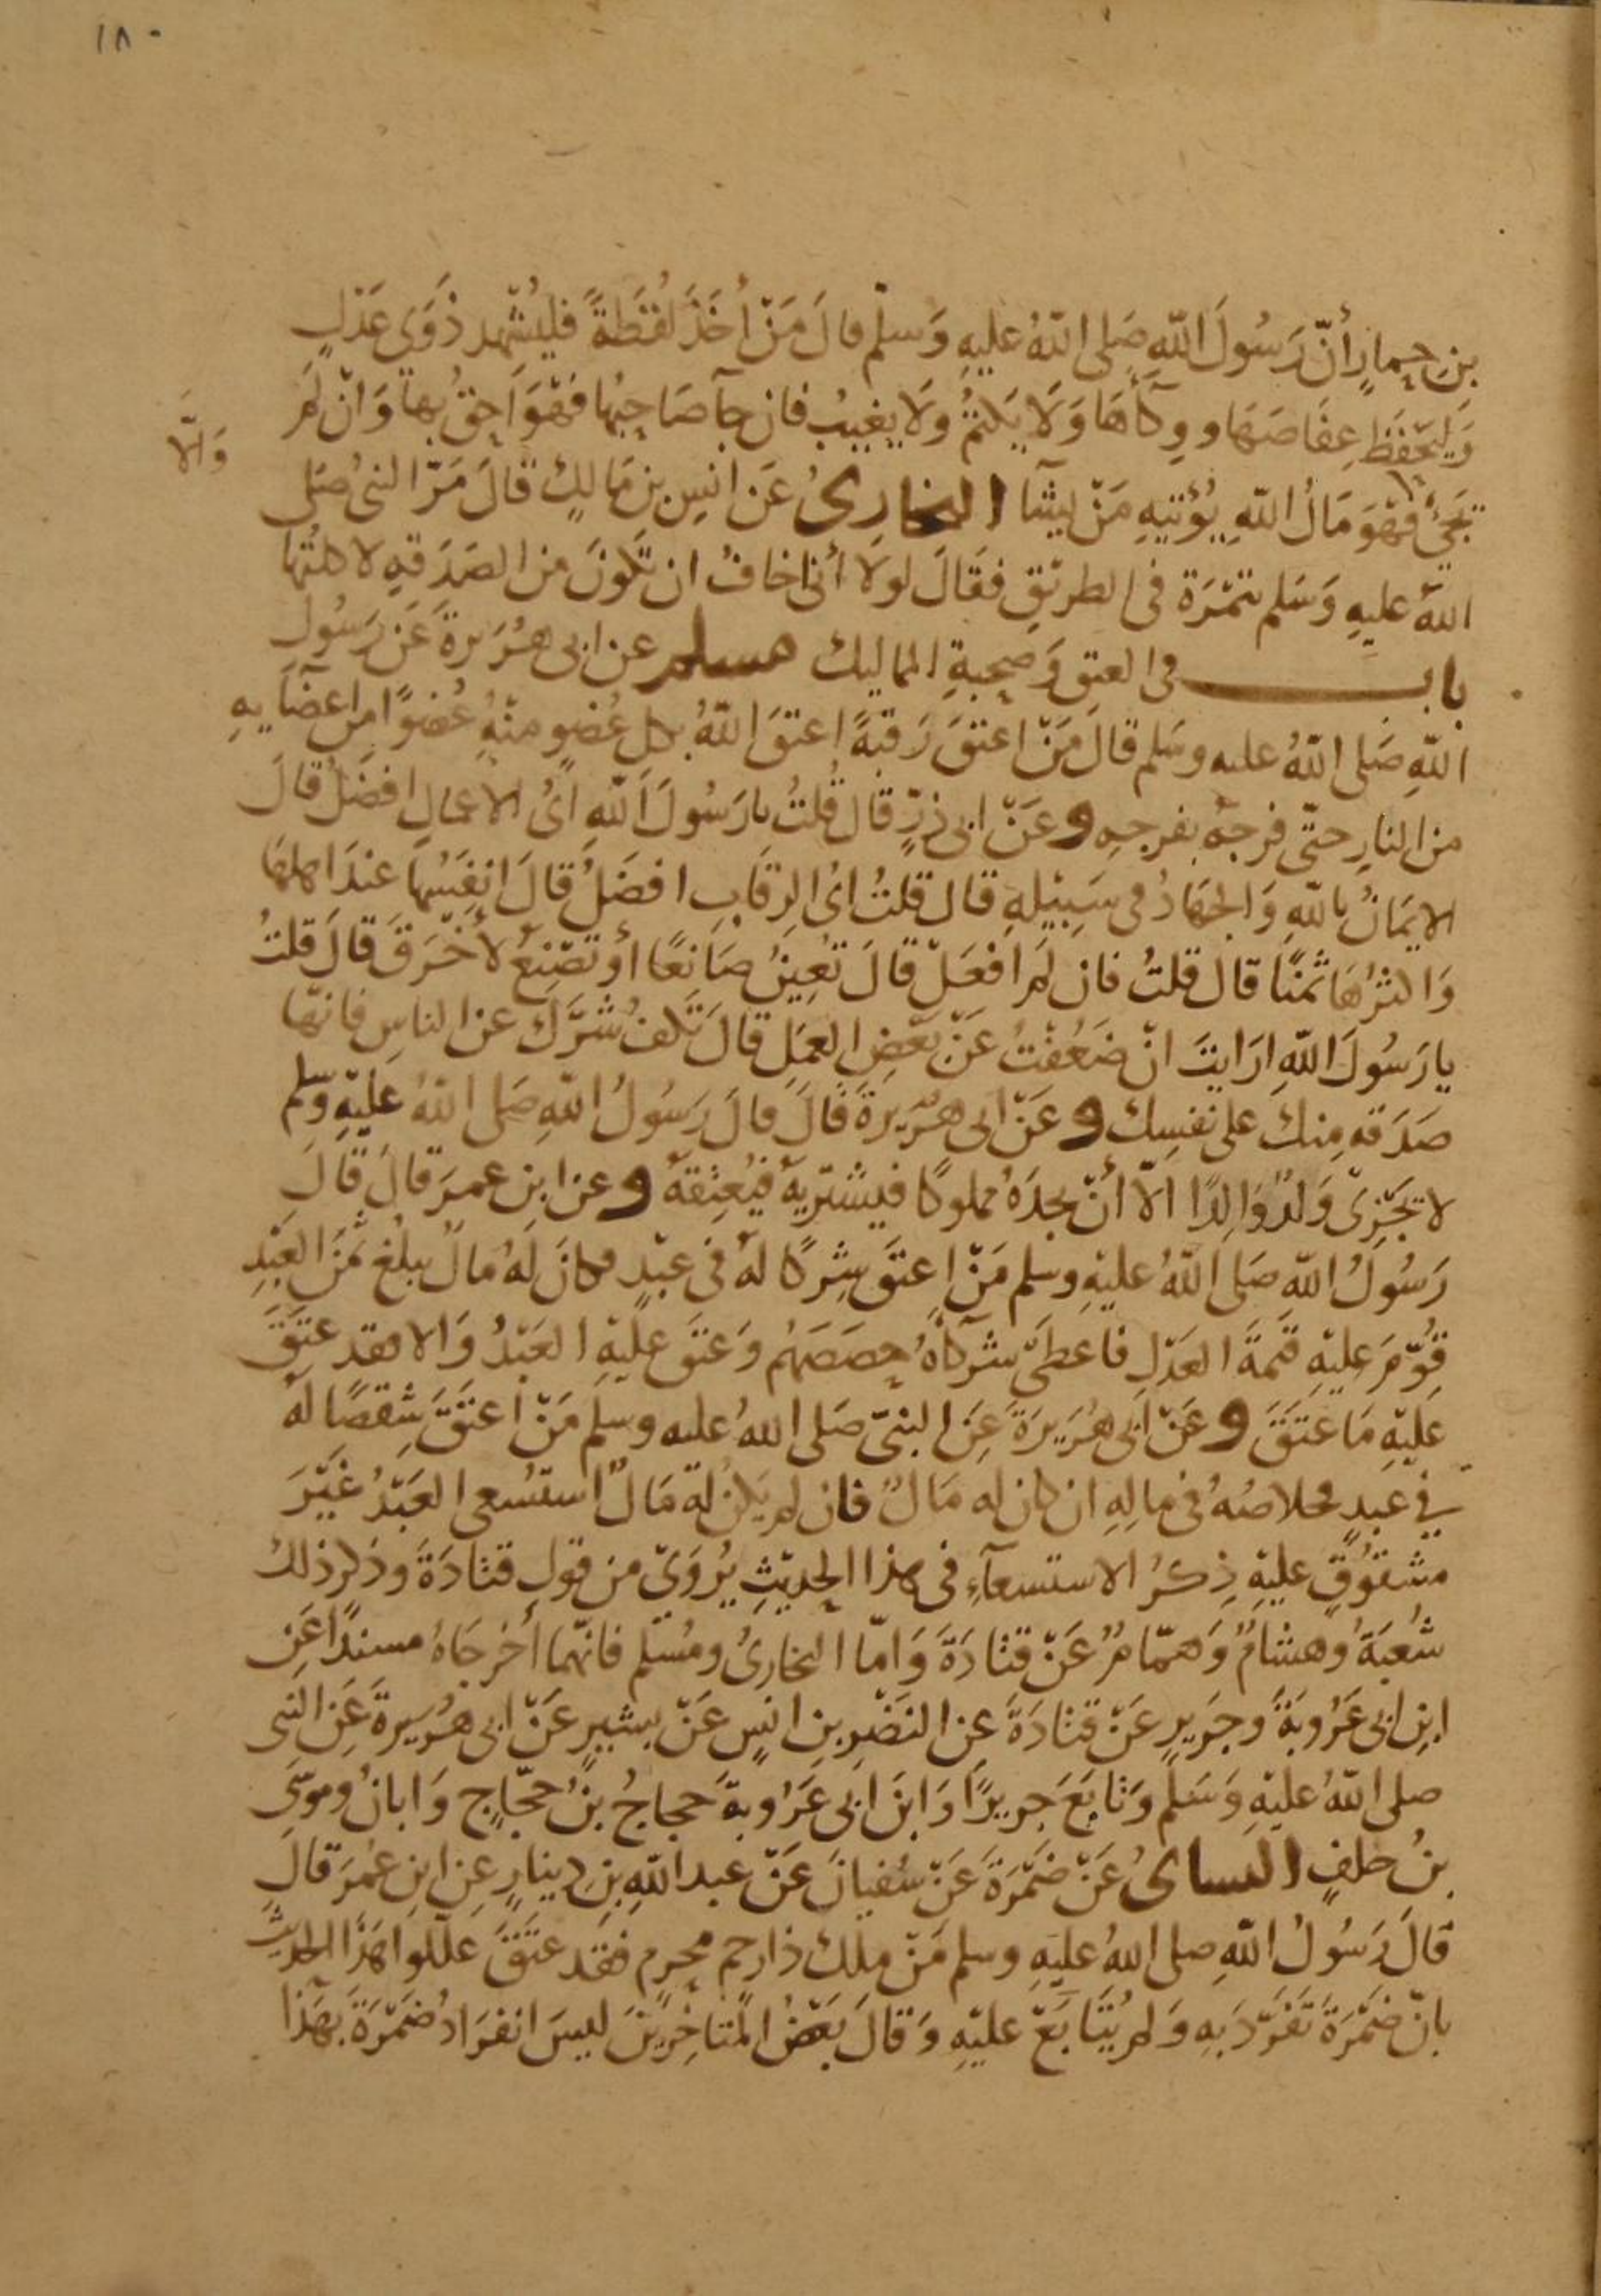 ١٨٠
بنِ حِمارٍ أنّ رَسُولَ اللّهِ صَلى اللّهُ عليهِ وَسلّم قالَ مَنْ أخَذَ لُقَطَةً فليُشْهد ذَوَى عَدلٍ
وَليَحْفَظ عِفَاصَهَا ووِكآءَهَا وَلَا يَكتمُ ولَا يغيبُ فان جآ صَاحِبُها فَهْوَ اَحِقُ بها وَانْ لَمْ
وَالّا
تَجِئْ فهْوَ مَالُ اللّهِ يُؤتيهِ مَنْ يشآ البخارِىُ عَن انسِ بنِ مَالكٍ قالَ مَرّ النبىُ صَلى
اللهُ عليهِ وَسَلم بتمْرَة فى الطريْقِ فقَالَ لولَا أنى اخافُ ان تكونَ من الصَدَقهِ لاكلتُها
باب فى العتقِ وَصحبةِ المماليك مسلم عن ابى هُرَيرةَ عَن رَسُول
اللّهِ صَلى اللّهُ عليه وسَلم قالَ مَنْ اعتقَ رَقبةً اعتقَ اللّهُ بكل عُضوٍ منْهُ عُضوًا من اعضَآيهِ
من النارِ حتّى فرجهُ بفرجهِ وعَنْ ابى ذرٍّ قال قُلتُ يا رَسُولَ اللّهِ اىُ الاعمالِ افضَلُ قالَ
الايمَانُ باللّهِ وَالجهَادُ فى سَبِيْلهِ قال قلتُ اىُ الرقَابِ افضَلُ قالَ انفَسُها عندَ اهلهَا
وَاكثرُهَا ثمنًا قالَ قلتُ فان لَم افعَلْ قالَ تعِينُ صَانعًا أو تصْنعُ لأخْرَقَ قالَ قلتُ
يا رَسُولَ اللّهِ ارَايتَ انْ ضَعُفتُ عَنْ بَعْضِ العمَلِ قالَ تكفُ شرَّك عن الناسِ فانّها
صَدَقه منكَ على نفسِك وعَنْ ابى هُرَيرةَ قَالَ قالَ رَسُولُ اللّهِ صَلى اللّهُ عَليْهِ وسلم
لا يَجْزِى وَلدٌ وَالِدًا الّا أنْ يجدَهُ مملوكًا فيشتريهُ فيُعتِقهُ وعن ابنِ عمرَ قالَ قالَ
رَسُولُ اللّهِ صَلى اللّهُ عليْهِ وسلم مَنْ اعتقَ شِركًا لهُ فى عبْدٍ فكانَ لهُ مالٌ يبلُغ ثمَنَ العَبْدِ
قُوِّمَ عليْهِ قيمَةَ العَدْلِ فاعطَى شركآهُ حِصَصَهُم وَعتقَ عليْهِ العَبْدُ وَالا فقد عتَقَ
عَليْهِ مَا عتَقَ وعَنْ ابى هُرَيرَةَ عَنِ النبىّ صَلى اللهُ عليه وسلم مَنْ اعتَقَ شِقصًا لهُ
في عبدٍ فخلاصُهُ فى مالِهِ ان كان له مَالٌ فان لم يَكن لهُ مَالٌ استُسعى العَبْدُ غَيْرَ
مشقُوقٍ عليْهِ ذِكرُ الاستسعآءِ فى هذا الحدِيْثِ يُروَىْ من قولِ قتادَةَ وذكر ذلكَ
شُعبَةُ وهشامٌ وَهمّامٌ عَنْ قتادَةَ وَامّا البخارىُ ومُسْلم فانّهما أخرجَاهُ مسندًا عَن
ابنِ ابى عَرُوبَةَ وجَرِيرٍ عَنْ قتادَةَ عنِ النَضْرِ بنِ انسٍ عَنْ بشيرٍ عَنْ ابى هُرَيرةَ عَنِ النبى
صلى اللّهُ عليْهِ وَسَلم وَتابَعَ جريرًا وَابنَ ابى عَرُوبةَ حجاجُ بنُ حجّاجٍ وَابانُ وموسَى
بنُ خلفٍ النساىُ عَنْ ضَمْرَةَ عَنْ سُفيانَ عَنْ عبد اللّهِ بنِ دينارٍ عنِ ابنِ عُمرَ قالَ
قالَ رَسُولُ اللّهِ صلى اللهُ عليهِ وسلم مَنْ ملكَ ذا رحمٍ محرمٍ فقد عتَقَ عللوا هَذا الحديثَ
بانّ ضَمْرَةَ تَفَرَّدَ بهِ وَلم يُتَابَعْ عليْهِ وَقالَ بَعْضُ المتاخِرِينَ ليسَ انفرَادُ ضَمْرَةَ بهَذا